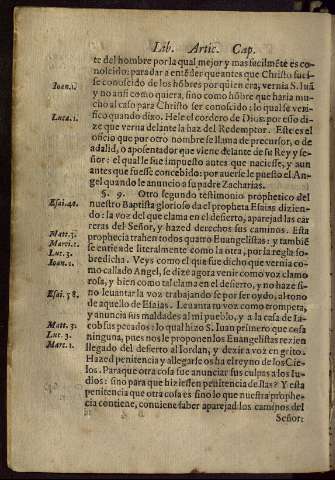 Lib. Artic. Cap.
te del hombre por la qual mejor y mas facilmēte es co-
nocido: para dar a entēder que antes que Christo fues-
se conocido de los hōbres por quien era, vernia S. Iuā
Ioan. 1.
y no ansi como quiera, sino como hōbre que haria mu-
cho al caso para Christo ser conocido: lo qual se veri-
fico quando dixo. He le el cordero de Dios: por esso di-
Luca. 1.
ze que verna delante la haz del Redemptor. Este es el
oficio que por otro nombre se llama de precursor, o de
adalid, o aposentador que viene delante de su Rey y se-
ñor: el qual le fue impuesto antes que naciesse, y aun
antes que fuesse concebido: por auerle puesto el An-
gel quando le annuncio a su padre Zacharias.
§. 9. Otro segundo testimonio prophetico del
Esai. 40.
nuestro Baptista glorioso da el propheta Esaias dizien-
do: la voz del que clama en el desierto, aparejad las car
reras del Señor, y hazed derechos sus caminos. Esta
Matt. 3.
prophecia trahen todos quatro Euangelistas: y tambiē
Marci. 1.
se entiēde literalmente como la otra, por la regla so-
Luc. 3.
bredicha. Veys como el que fue dicho que vernia co-
Ioan. 1.
mo callado Angel, se dize agora venir como voz clamo
rosa, y bien como tal clama en el desierto, y no haze si-
Esai. 58.
no leuantar la voz trabajando se por ser oydo, al tono
de aquello de Esaias. Leuanta tu voz como trompeta,
y anuncia sus maldades al mi pueblo, y a la casa de Ia-
Matt. 3.
cob sus pecados: lo qual hizo S. Iuan primero que cosa
Luc. 3.
ninguna, pues nos le proponen los Euangelistas rezien
Marc. 1.
llegado del desierto al Iordan, y dezir a voz en grito.
Hazed penitencia y allegarse os ha el reyno de los Cie-
los. Para que otra cosa fue anunciar sus culpas a los Iu-
dios: sino para que hiziessen penitencia dellas? Y esta
penitencia que otra cosa es sino lo que nuestra prophe-
cia contiene, conuiene saber aparejad los caminos del
Señor: